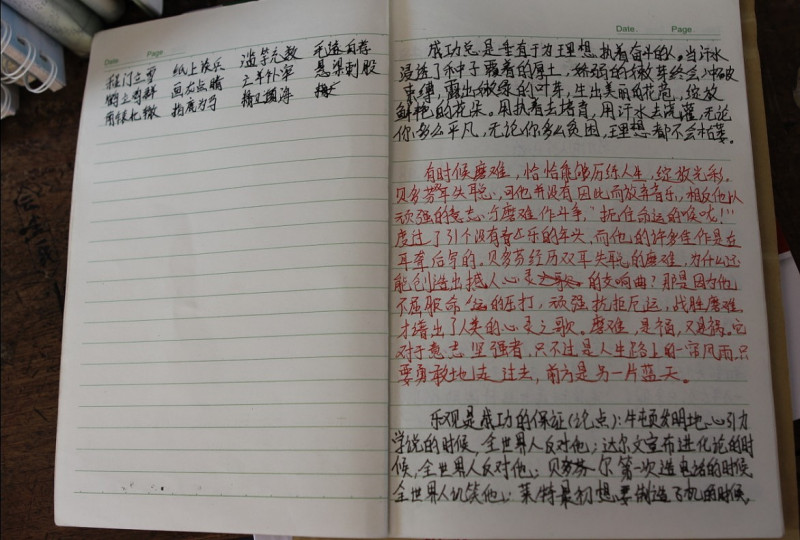 Date Page
程门立雪 纸上谈兵 滥竽充数 毛遂自荐
鹤立鸡群 画龙点睛 亡羊补牢 悬梁刺股
南辕北辙 指鹿为马 精卫填海
Date. Page
成功总是垂直于为理想执着奋斗的人。当汗水
浸透了种子覆着的厚土,稚弱的嫩芽终会冲破
束缚,露出嫩绿的叶芽,生出美丽的花苞,绽放
鲜艳的花朵。用执着去培育,用汗水去浇灌,无论
你多么平凡,无论你多么贫困,理想都不会枯萎。
有时候磨难,恰恰能够历练人生,绽放光彩。
贝多芬耳失聪,可他并没有因此而放弃音乐,相反他以
顽强的意志与磨难作斗争,"扼住命运的喉咙!"
度过了31个没有音乐的年头,而他的许多佳作是在
耳聋后写的。贝多芬经历双耳失聪的磨难,为什么还
能创造出撼人心灵的交响曲?那是因为他
不屈服命运的压打,顽强抗拒厄运,战胜磨难,
才谱出了人类的心灵之歌。磨难,是福,又是祸。它
对于意志坚强者,只不过是人生路上的一帘风雨,只
要勇敢地走过去,前方是另一片蓝天。
乐观是成功的保证(论点):牛顿发明地心引力
学说的时候,全世界人反对他;达尔文宣布进化论的时
候,全世界人反对他;贝尔第一次造电话的时候
全世界人讥笑他;莱特最初想要制造飞机的时候,